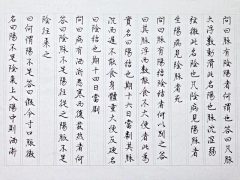 問曰脉有陰陽者何謂也答曰凡脉
大浮數動滑此名陽也脉沉澀弱
弦微此名陰也凡陰病見陽脉者
生陽病見陰脉者死
問曰脉有陽結陰結者何以別之答
曰其脉浮而數能食不大便者此爲
實名曰陽結也期十六日當劇其脉
沉而遲不能食身體重大便反硬名
曰陰結也期十四日當劇
問曰病有洒淅惡寒而復發熱者何
答曰陰脉不足陽往從之陽脉不足
陰往乘之
曰何謂陽不足答曰假令寸口脉微
名曰陽不足陰氣上入陽中則洒淅